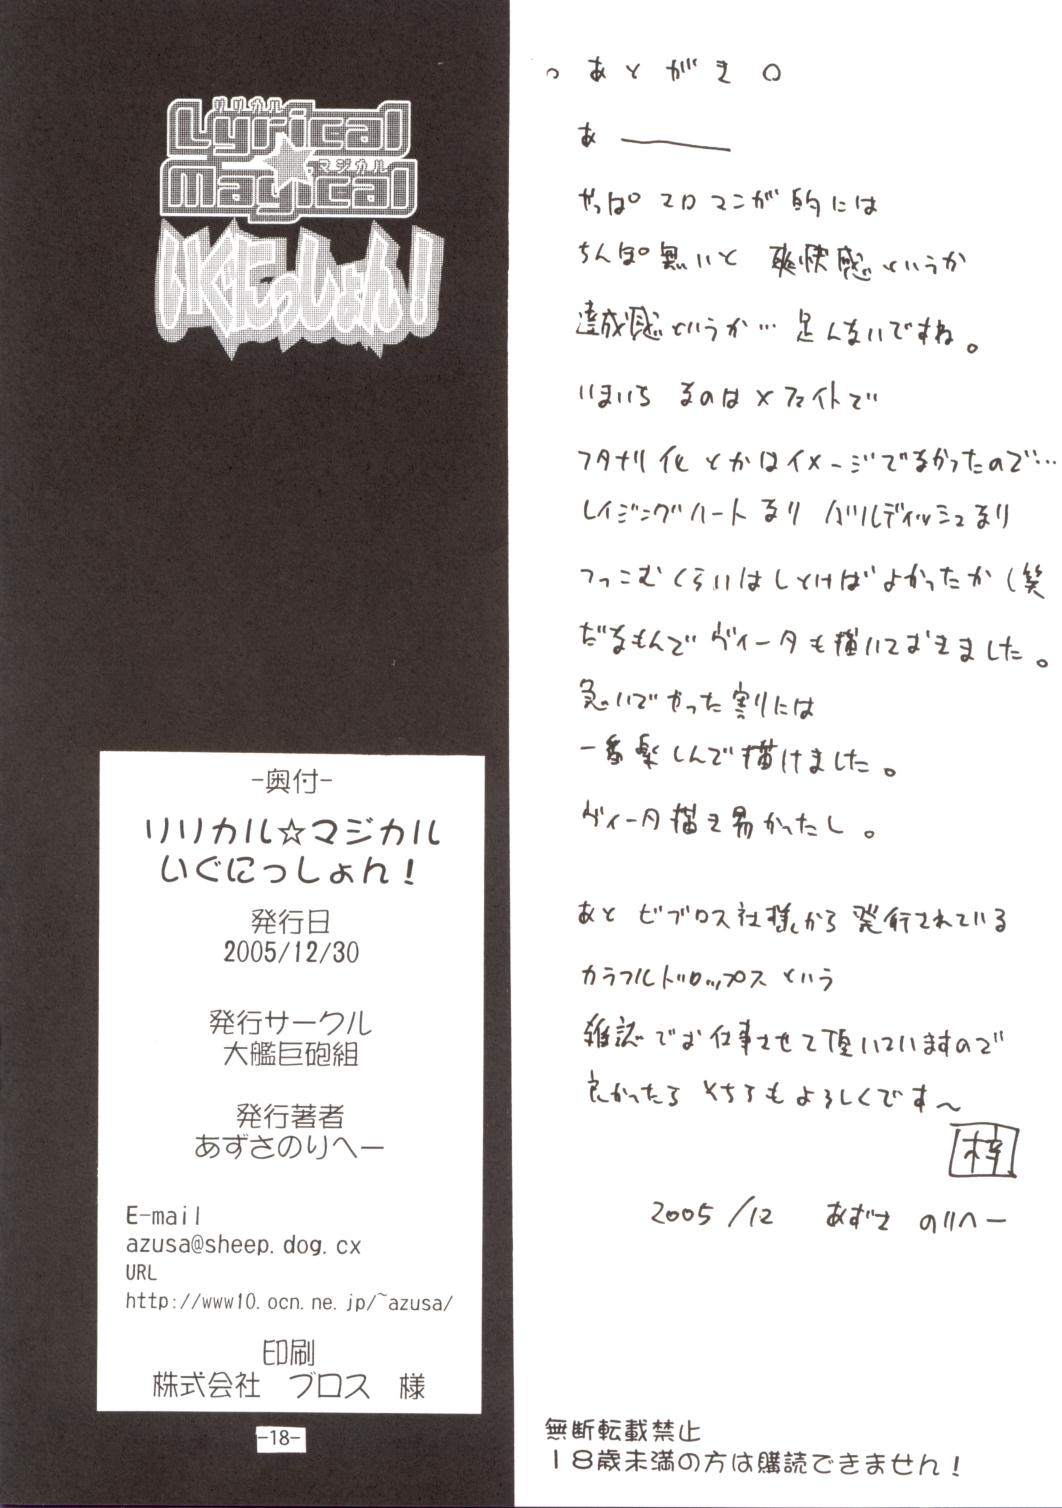 。あとがき。
あ――
やっぱエロマンガ的には
ちんぽ無いと 爽快感というか
達成感というか… 足んないですね。
いまいち なのは×フェイトで
フタナリ化とかはイメージでなかったので…
レイジングハートなり バルディッシュなり
つっこむくらいはしとけばよかったか(笑
だなもんで ヴィータも描いておきました。
急いでやった割りには
一番楽しんで描けました。
ヴィータ描き易かったし。
あと ビブロス社様から発行されている
カラフルドロップスという
雑誌でお仕事させて頂いていますので
良かったら そちらもよろしくです～
梓
2005/12 あずさ のりへー
無断転載禁止
18歳未満の方は購読できません!
リリカル
Lyrical
マジカル
☆Magical
いぐにっしょん!
-奥付-
リリカル☆マジカル
いぐにっしょん!
発行日
2005/12/30
発行サークル
大艦巨砲組
発行著者
あずさのりへー
E-mail
azusa@sheep.dog.cx
URL
http://www10.ocn.ne.jp/~azusa/
印刷
株式会社 ブロス 様
-18-